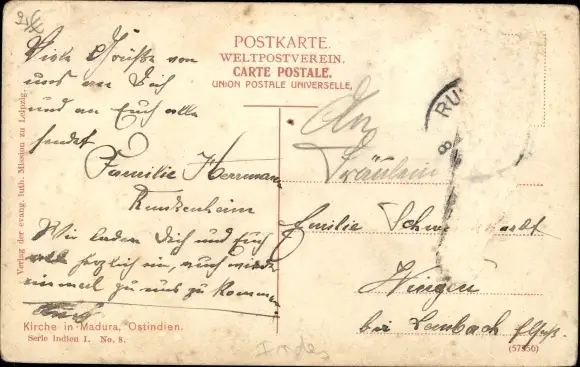 POSTKARTE.
WELTPOSTVEREIN.
CARTE POSTALE.
UNION POSTALE UNIVERSELLE.
Viele Grüße von
uns an Dich
und an Euch alle
sendet
Familie Herrmann
Kunksenheim
Wir laden Dich und Euch
alle herzlich ein, auch wieder
einmal zu uns zu kommen.
An
Fräulein
Emilie
Wingen
bei Lembach Elsaß.
RU
8
Verlag der evang. luth. Mission zu Leipzig.
Kirche in Madura, Ostindien.
Serie Indien I. No. 8.
Indes
(57356)